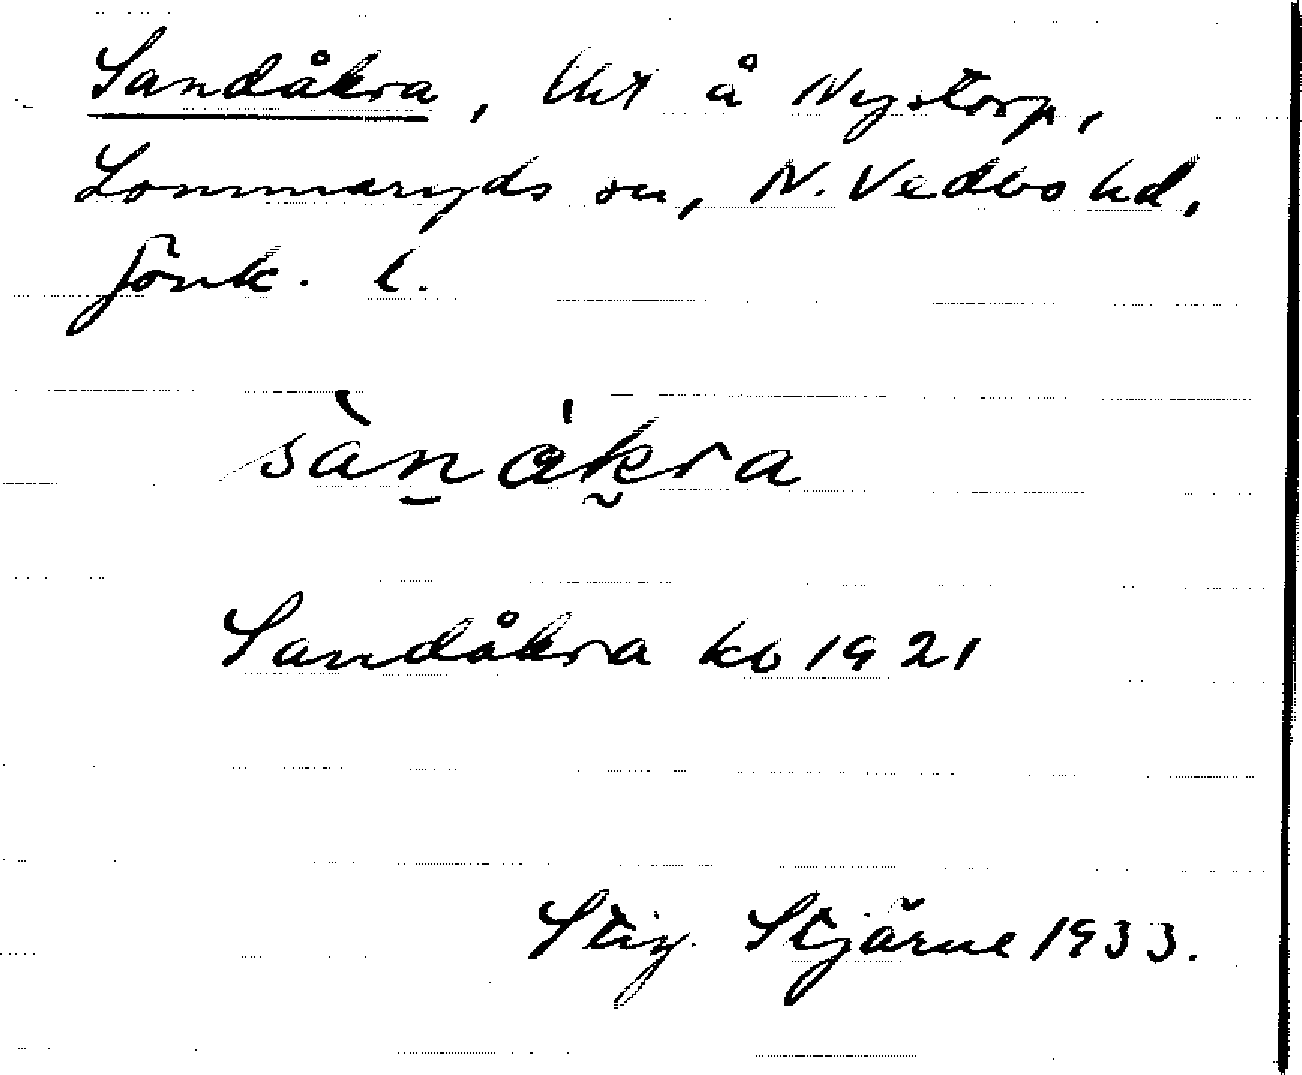 Sandåkra, Uht å Nystorp,
Lommaryds sn, N. Vedbo hd,
Jönk. l.
sànákra
Sandåkra kb 1921
Stig Stjärne 1933.